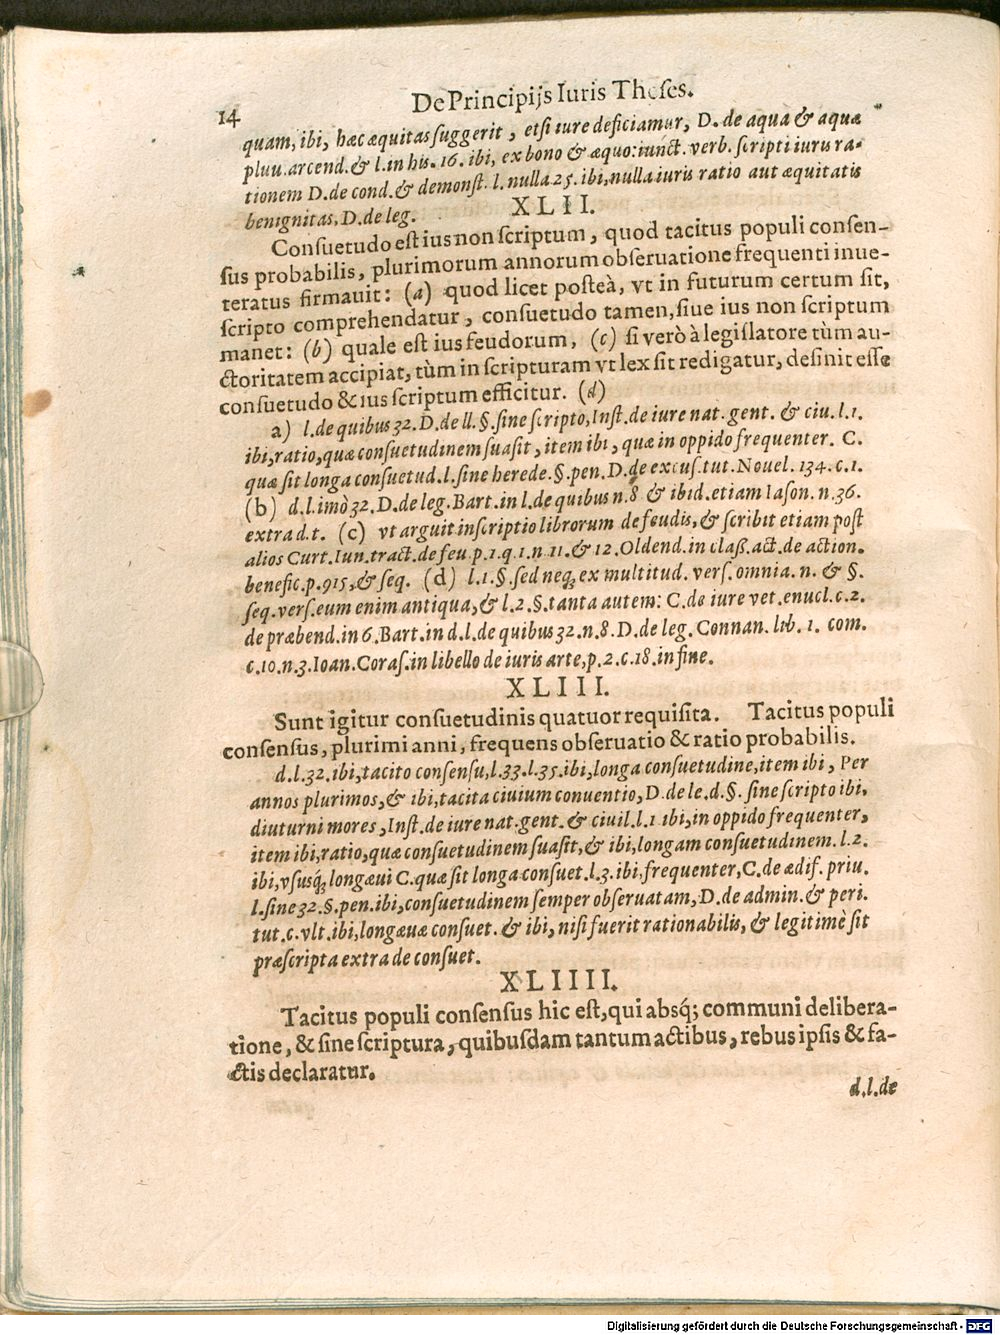 14
De Principijs Iuris Theses.
quam, ibi, hæc æquitas suggerit, etsi iure deficiamur, D. de aqua & aquæ
pluu. arcend. & l. in his. 16. ibi, ex bono & æquo: iunct. verb. scripti iuris ra-
tionem D. de cond. & demonst. l. nulla 25. ibi, nulla iuris ratio aut æquitatis
benignitas, D. de leg.
XLII.
Consuetudo est ius non scriptum, quod tacitus populi consen-
sus probabilis, plurimorum annorum obseruatione frequenti inue-
teratus firmauit: (a) quod licet posteà, vt in futurum certum sit,
scripto comprehendatur, consuetudo tamen, siue ius non scriptum
manet: (b) quale est ius feudorum, (c) si verò à legislatore tùm au-
ctoritatem accipiat, tùm in scripturam vt lex sit redigatur, desinit esse
consuetudo & ius scriptum efficitur. (d)
a) l. de quibus 32. D. de ll. §. sine scripto, Inst. de iure nat. gent. & ciu. l. 1.
ibi, ratio, quæ consuetudinem suasit, item ibi, quæ in oppido frequenter. C.
quæ sit longa consuetud. l. sine herede. §. pen. D. de excus. tut. Nouel. 134. c. 1.
(b) d. l. imò 32. D. de leg. Bart. in l. de quibus n. 8 & ibid. etiam Iason. n. 36.
extra d. t. (c) vt arguit inscriptio librorum de feudis, & scribit etiam post
alios Curt. Iun. tract. de feu p. 1. q. 1. n 11. & 12. Oldend. in claß. act. de action.
benefic. p. 915, & seq. (d) l. 1. §. sed neq; ex multitud. vers. omnia. n. & §.
seq. vers. eum enim antiqua, & l. 2. §. tanta autem: C. de iure vet. enucl. c. 2.
de præbend. in 6. Bart. in d. l. de quibus 32. n. 8. D. de leg. Connan. lib. 1. com.
c. 10. n. 3. Ioan. Coras. in libello de iuris arte, p. 2. c. 18. in fine.
XLIII.
Sunt igitur consuetudinis quatuor requisita. Tacitus populi
consensus, plurimi anni, frequens obseruatio & ratio probabilis.
d. l. 32. ibi, tacito consensu, l. 33. l. 35. ibi, longa consuetudine, item ibi, Per
annos plurimos, & ibi, tacita ciuium conuentio, D. de le. d. §. sine scripto ibi,
diuturni mores, Inst. de iure nat. gent. & ciuil. l. 1 ibi, in oppido frequenter,
item ibi, ratio, quæ consuetudinem suasit, & ibi, longam consuetudinem. l. 2.
ibi, vsusq; longæui C. quæ sit longa consuet. l. 3. ibi, frequenter, C. de ædif. priu.
l. sine 32. §. pen. ibi, consuetudinem semper obseruatam, D. de admin. & peri.
tut. c. vlt. ibi, longæuæ consuet. & ibi, nisi fuerit rationabilis, & legitimè sit
præscripta extra de consuet.
XLIIII.
Tacitus populi consensus hic est, qui absq; communi delibera-
tione, & sine scriptura, quibusdam tantum actibus, rebus ipsis & fa-
ctis declaratur.
d. l. de
Digitalisierung gefördert durch die Deutsche Forschungsgemeinschaft - DFG